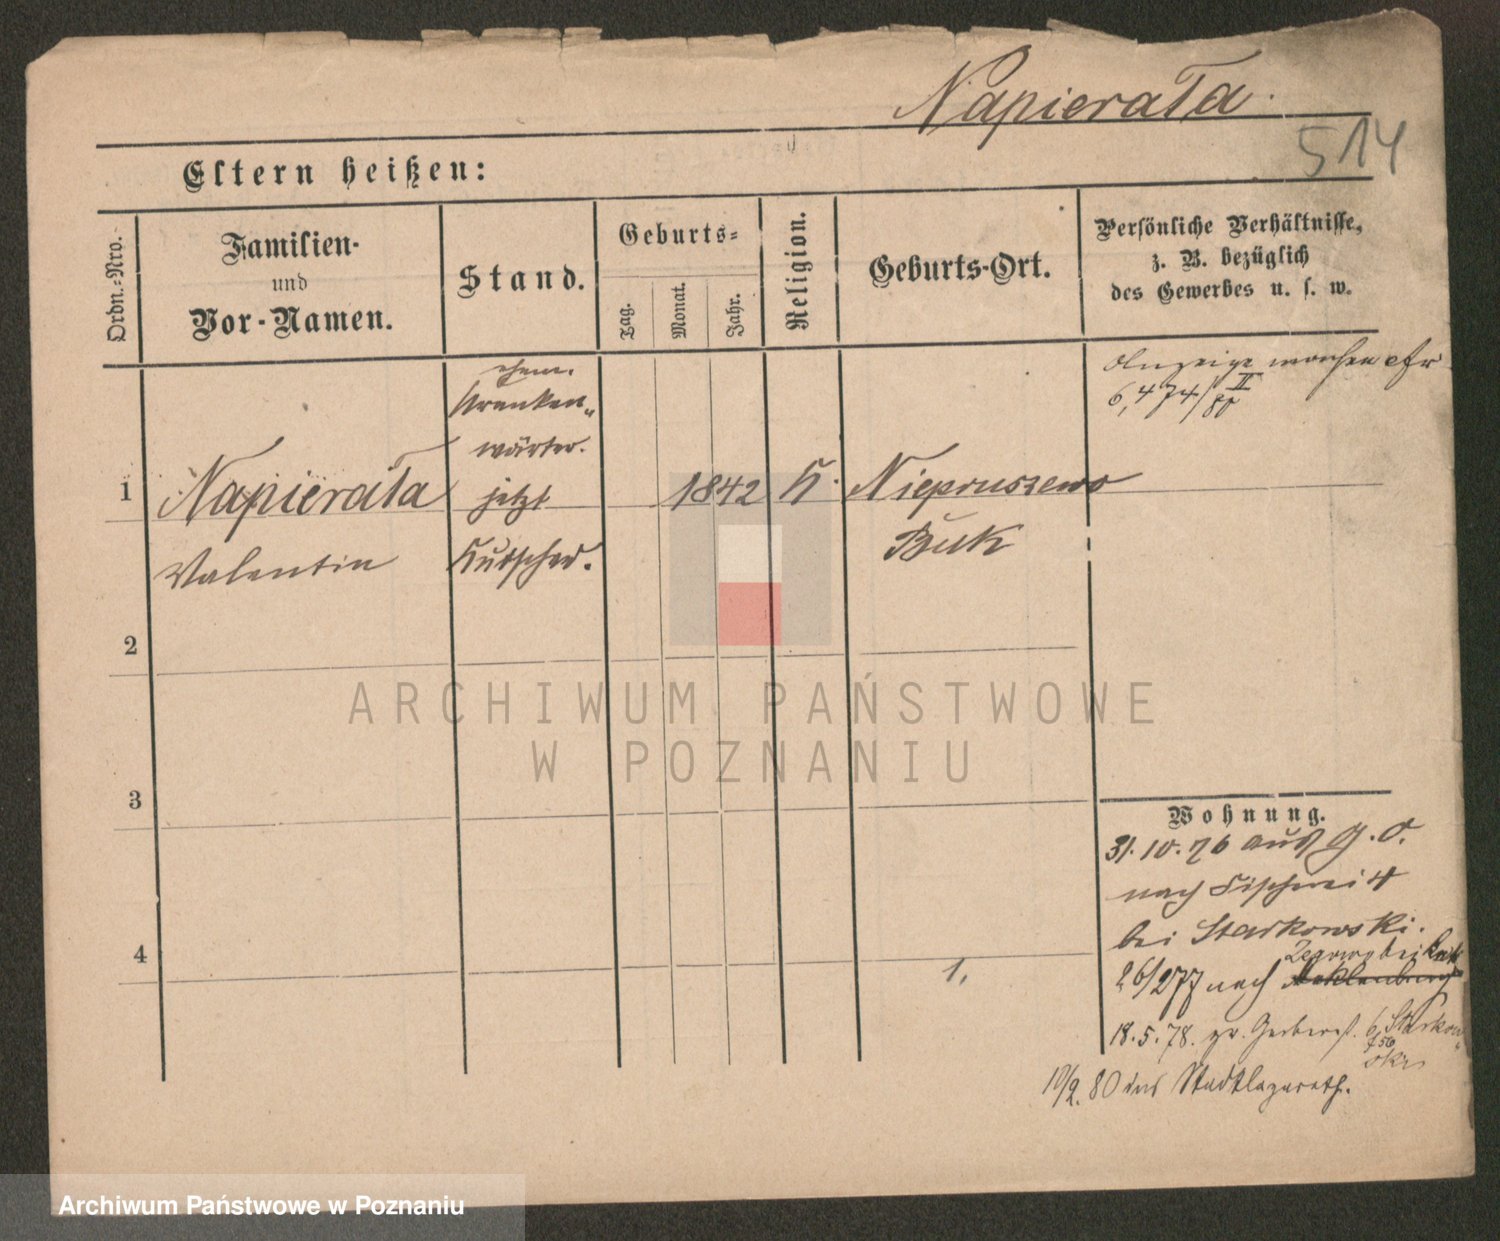 Napierała.
514
Eltern heißen:
Ordn.-Nro.
Familien-
und
Vor-Namen.
Stand.
Geburts-
Tag.
Monat.
Jahr.
Religion.
Geburts-Ort.
Persönliche Verhältnisse,
z. B. bezüglich
des Gewerbes u. s. w.
1
Napierała
Valentin
ehem.
Kranken-
wärter.
jetzt
Kutscher.
1842
K.
Niepruszewo
Buk
Anzeige
6,474/II
2
3
4
1.
Wohnung.
31.10.76 aus G. O.
nach Fischerei 4
bei Starkowski.
Zegowo bei
26/2 77 nach Meklenburg
18.5.78. gr. Gerberst. 6, Starkow
10/2. 80 ins Stadtlazareth.
ARCHIWUM PAŃSTWOWE
W POZNANIU
Archiwum Państwowe w Poznaniu